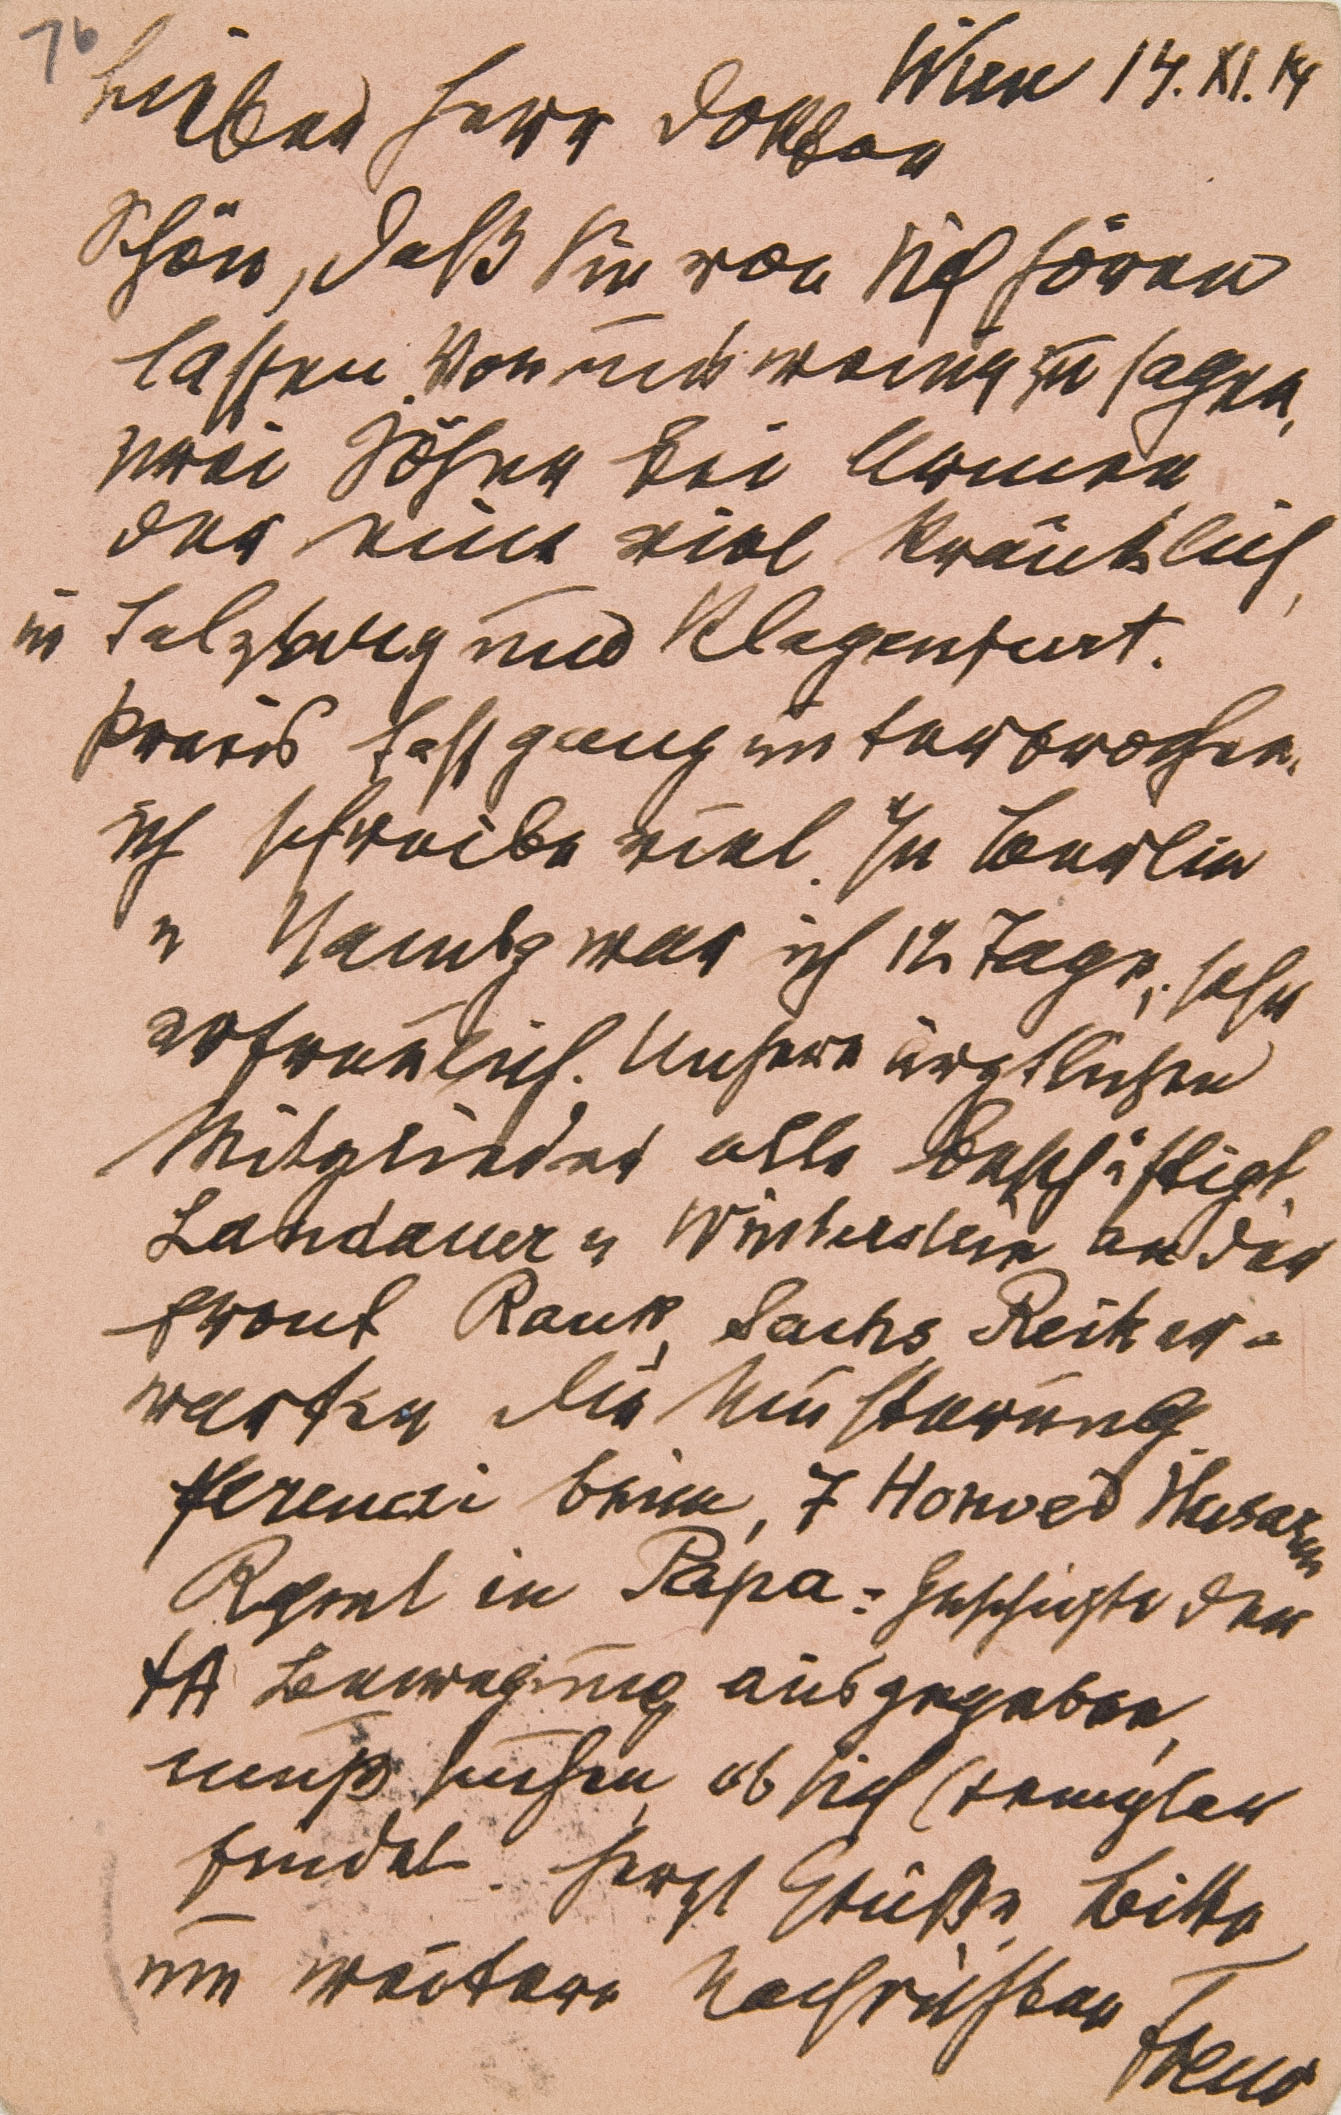 76
Wien 14. XI. 14
Lieber Herr Doktor
Schön, daß Sie von sich hören
lassen. Von uns wenig zu sagen,
zwei Söhne bei Armee
der eine viel kränklich,
in Salzburg und Klagenfurt.
Praxis fast ganz unterbrochen.
ich schreibe viel. In Berlin
u Hambg war ich 12 Tage, sehr
erfreulich. Unsere ärztlichen
Mitglieder alle beschäftigt,
Landauer u Winterstein an der
Front Rank, Sachs Reik er-
warten die Musterung
Ferenczi beim 7 Honved Husaren
Rgmt in Papa. Geschichte der
ΨA Bewegung ausgegeben,
muß suchen, ob sich Exemplar
findet. Herzl Grüße, Bitte
um weitere Nachrichten
Freud